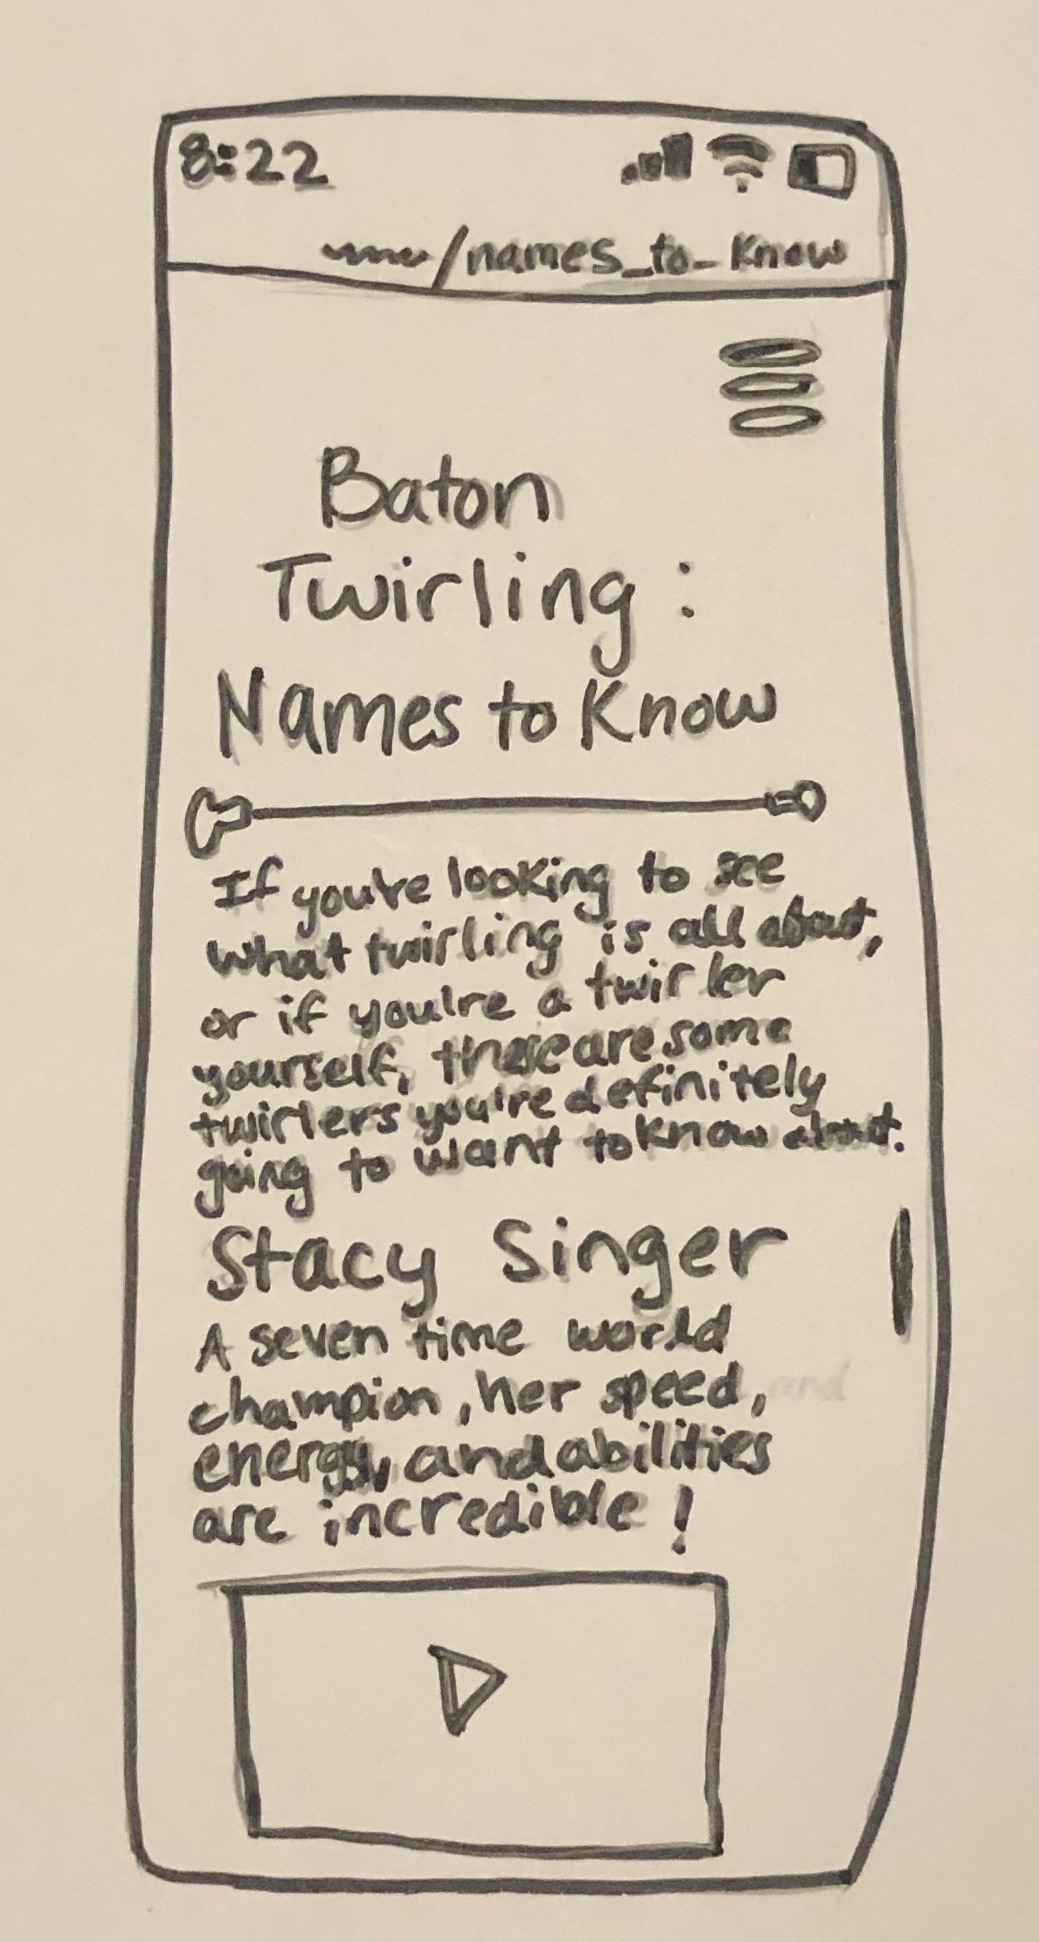 8:22
/names_to_know
Baton
Twirling:
Names to Know
If you're looking to see
what twirling is all about,
or if you're a twirler
yourself, these are some
twirlers you're definitely
going to want to know about.
Stacy Singer
A seven time world
champion, her speed,
energy, and abilities
are incredible!